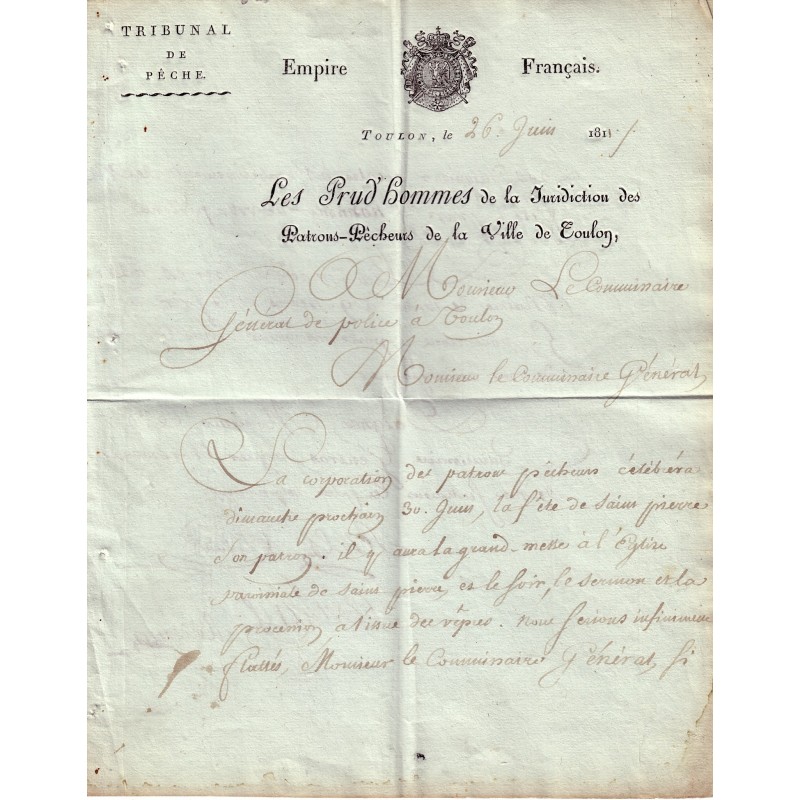 TRIBUNAL
DE
PÊCHE.
Empire Français.
TOULON, le 26. Juin 1811
Les Prud'hommes de la Juridiction des
Patrons-Pêcheurs de la Ville de Toulon,
A Monsieur Le Commissaire
Général de police à Toulon
Monsieur le Commissaire Général,
La corporation des patrons pêcheurs célébrera
dimanche prochain 30. Juin, la fête de saint pierre
son patron. il y aura la grand-messe à l'Eglise
paroissiale de saint pierre, et le soir, le sermon et la
procession à l'issue des vêpres. nous serions infiniment
flattés, Monsieur le Commissaire Général, si